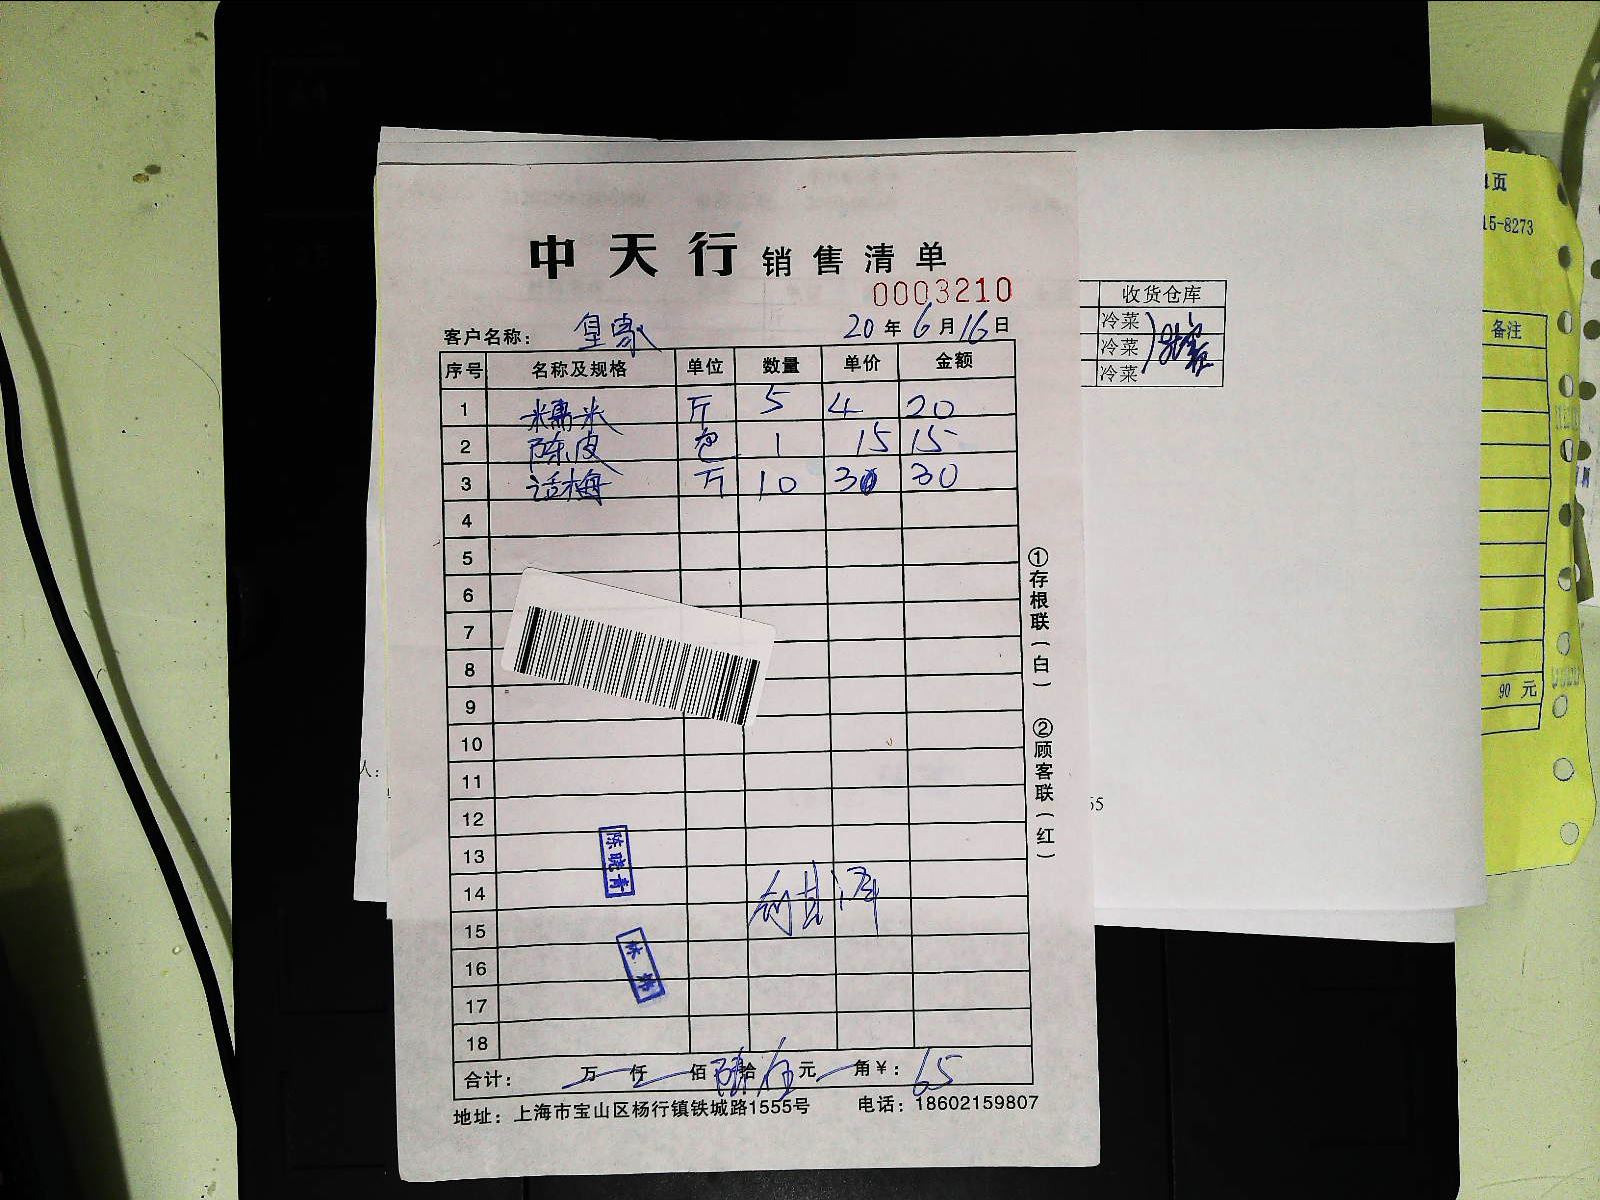 中天行 销售清单
0003210
客户名称: 皇家 20年6月16日
序号 名称及规格 单位 数量 单价 金额
1 糯米 斤 5 4 20
2 陈皮 包 1 15 15
3 话梅 斤 10 30 30
4
5
6
7
8
9
10
11
12
13
14
15
16
17
18
陈晓青
合计: 万 仟 佰 陆拾伍元 角¥: 65
地址: 上海市宝山区杨行镇铁城路1555号 电话: 18602159807
①存根联(白) ②顾客联(红)
收货仓库
冷菜
冷菜
冷菜
人:
页
15-8273
备注
90 元